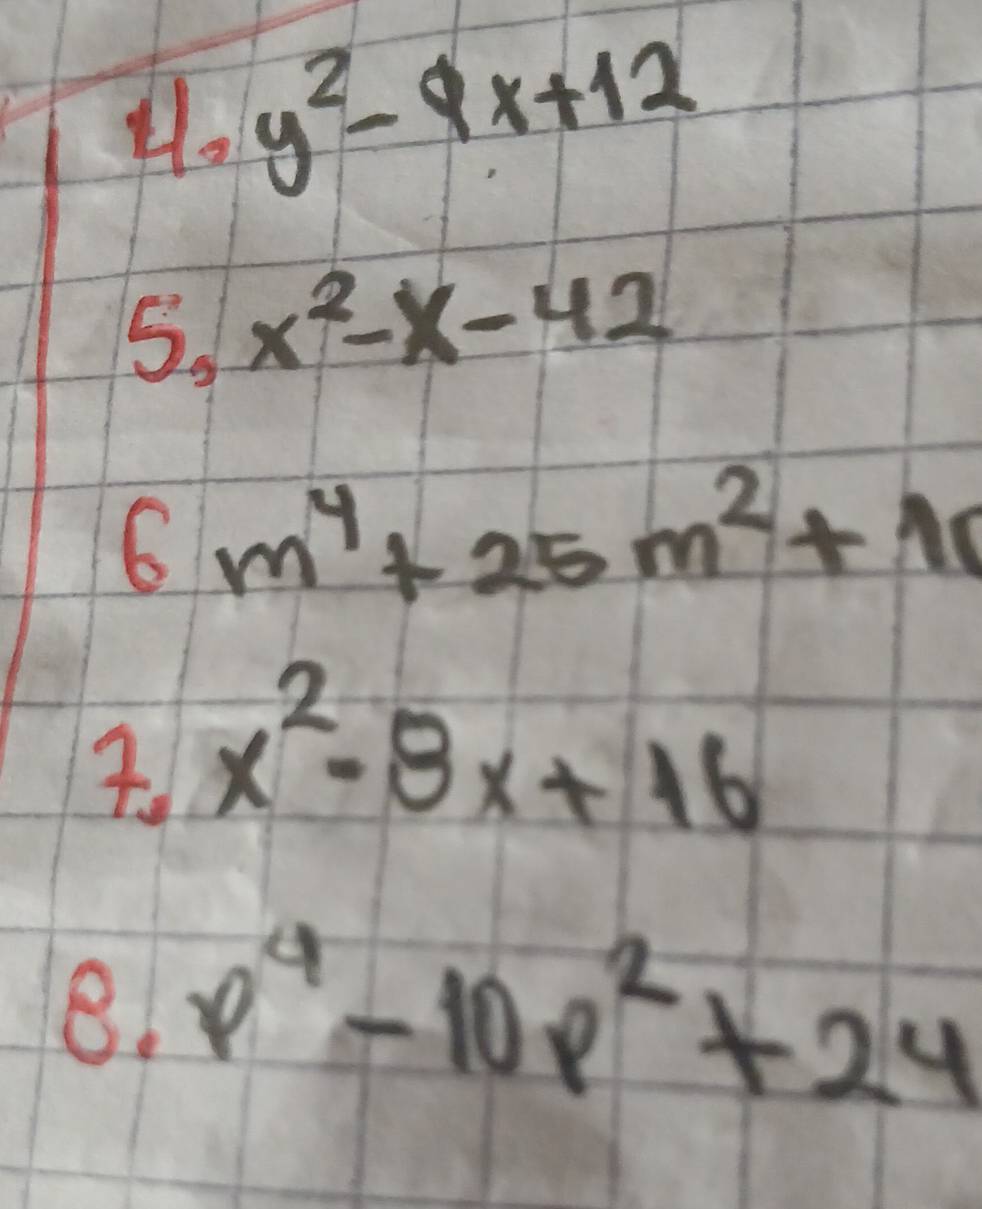 4. y² - 9x+12
5. x² - x - 42
6 m⁴ + 25 m² + 10
7. x² - 8x + 16
8. p⁴ - 10p² + 24